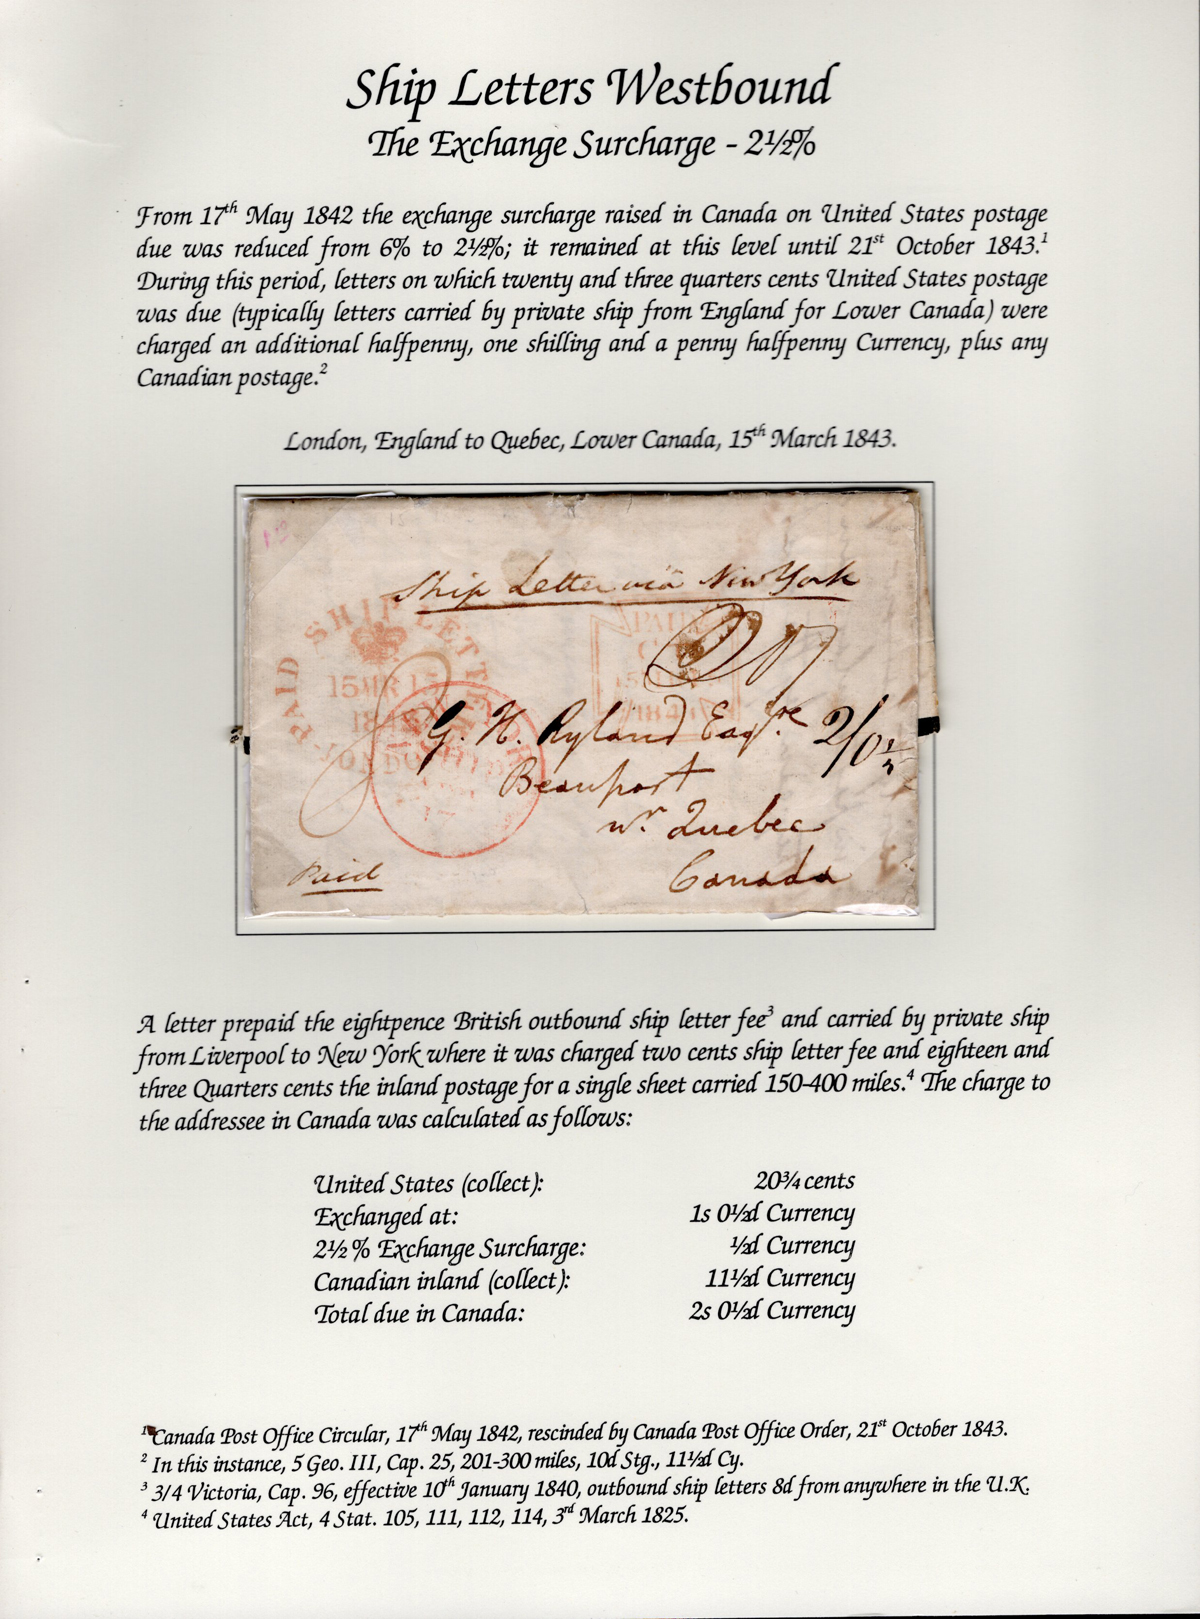 Ship Letters Westbound
The Exchange Surcharge - 2½%
From 17th May 1842 the exchange surcharge raised in Canada on United States postage
due was reduced from 6% to 2½%; it remained at this level until 21st October 1843.1
During this period, letters on which twenty and three quarters cents United States postage
was due (typically letters carried by private ship from England for Lower Canada) were
charged an additional halfpenny, one shilling and a penny halfpenny Currency, plus any
Canadian postage.2
London, England to Quebec, Lower Canada, 15th March 1843.
Ship Letter via New York
PAID SHIP LETTER
15 MR 15
LONDON
PAID
G. H. Ryland Esqre
2/0½
Beauport
nr. Quebec
Canada
Paid
A letter prepaid the eightpence British outbound ship letter fee3 and carried by private ship
from Liverpool to New York where it was charged two cents ship letter fee and eighteen and
three Quarters cents the inland postage for a single sheet carried 150-400 miles.4 The charge to
the addressee in Canada was calculated as follows:
United States (collect): 20¾ cents
Exchanged at: 1s 0½d Currency
2½ % Exchange Surcharge: ½d Currency
Canadian inland (collect): 11½d Currency
Total due in Canada: 2s 0½d Currency
1 Canada Post Office Circular, 17th May 1842, rescinded by Canada Post Office Order, 21st October 1843.
2 In this instance, 5 Geo. III, Cap. 25, 201-300 miles, 10d Stg., 11½d Cy.
3 3/4 Victoria, Cap. 96, effective 10th January 1840, outbound ship letters 8d from anywhere in the U.K.
4 United States Act, 4 Stat. 105, 111, 112, 114, 3rd March 1825.